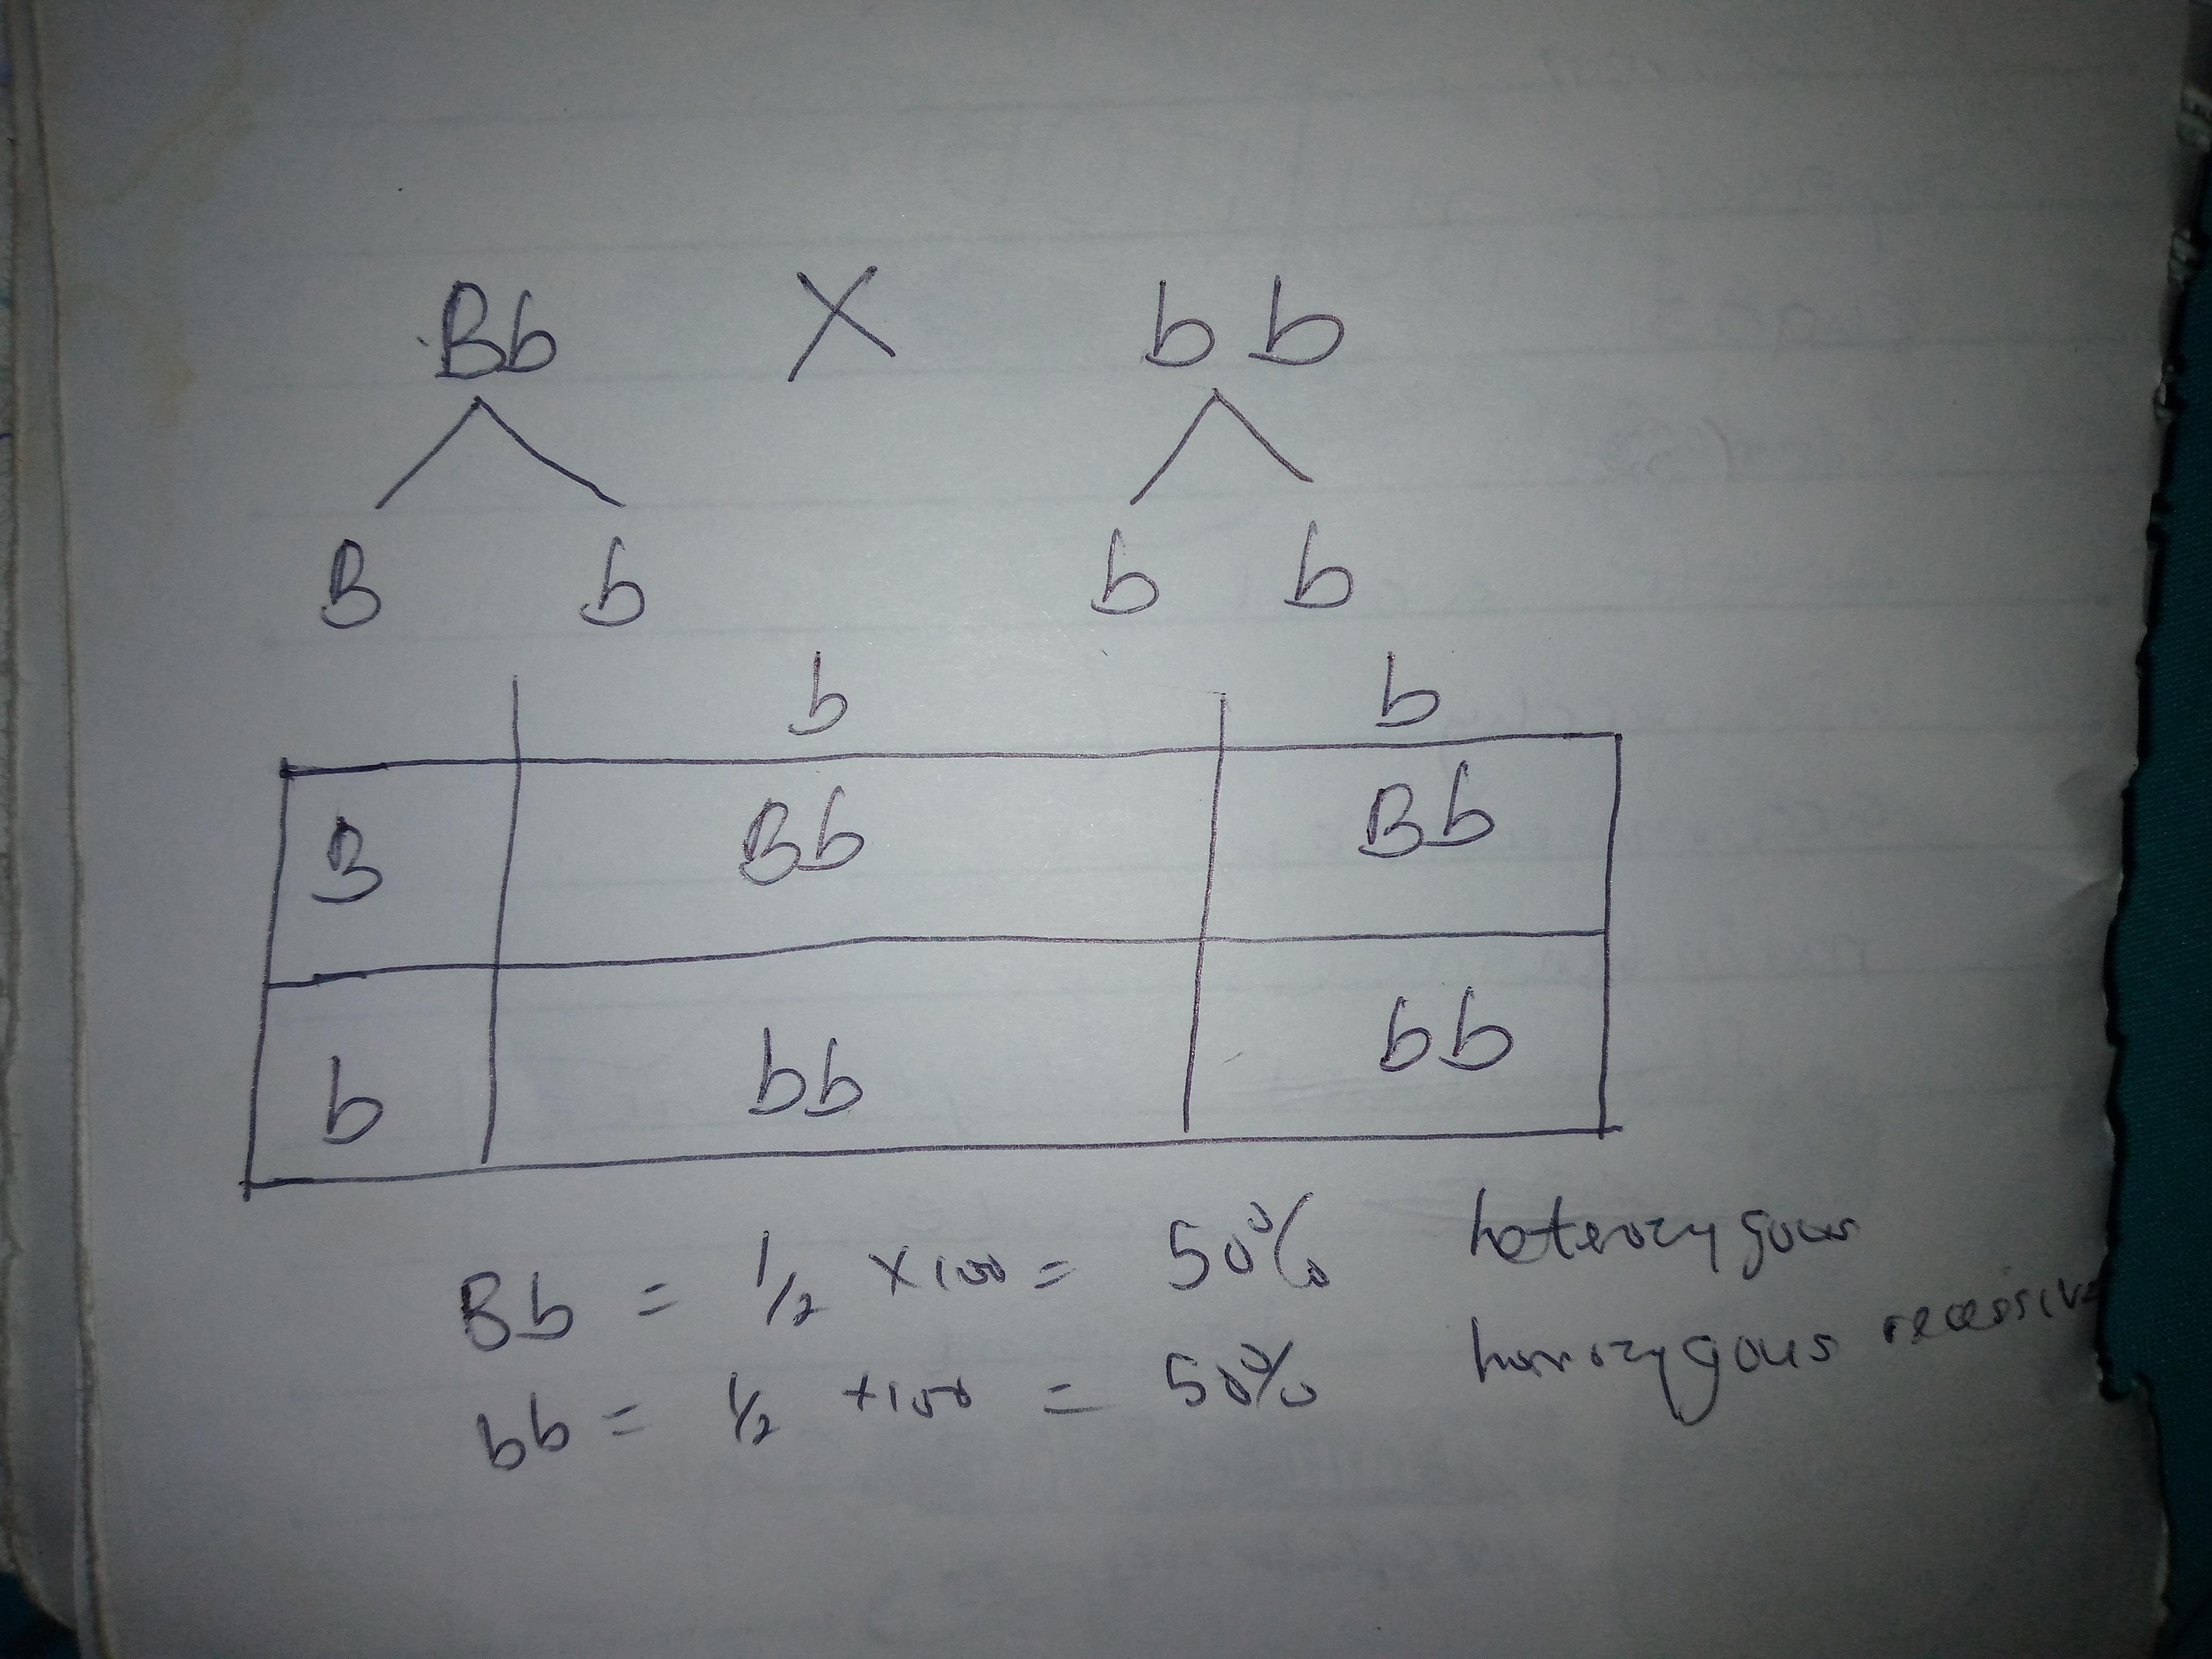 Bb X bb
B b b b
b b
B Bb Bb
b bb bb
Bb = 1/2 x100 = 50% heterozygous
bb = 1/2 x100 = 50% homozygous recessive